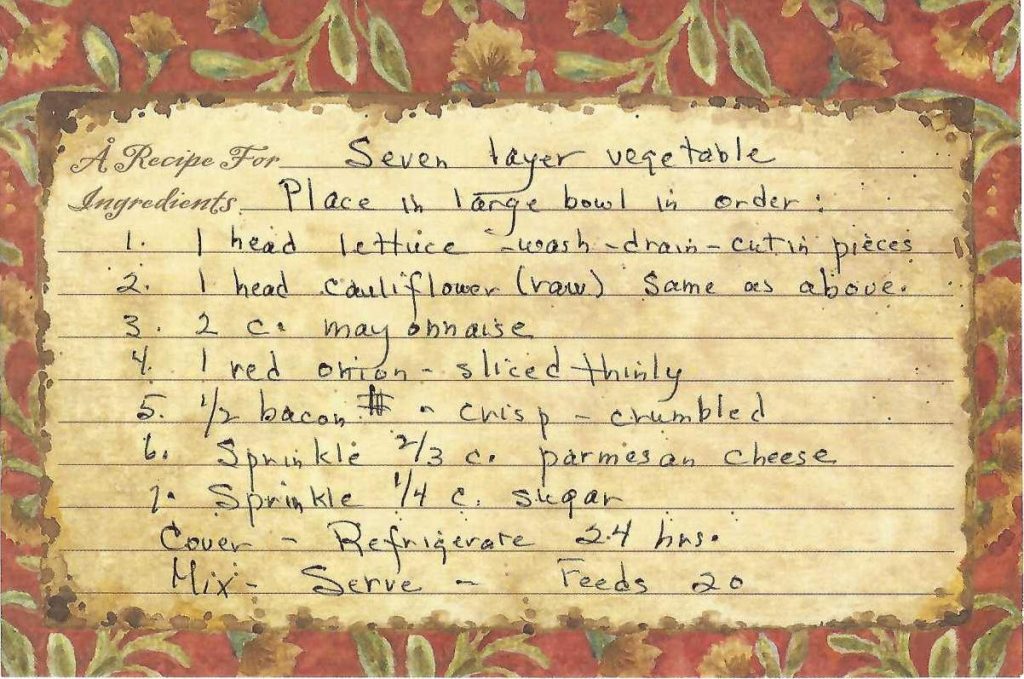 A Recipe For Seven layer vegetable
Ingredients Place in large bowl in order:
1. 1 head lettuce - wash - drain - cut in pieces
2. 1 head cauliflower (raw) Same as above.
3. 2 c. mayonnaise
4. 1 red onion - sliced thinly
5. 1/2 bacon # - crisp - crumbled
6. Sprinkle 2/3 c. parmesan cheese
7. Sprinkle 1/4 c. sugar
Cover - Refrigerate 24 hrs.
Mix - Serve - Feeds 20